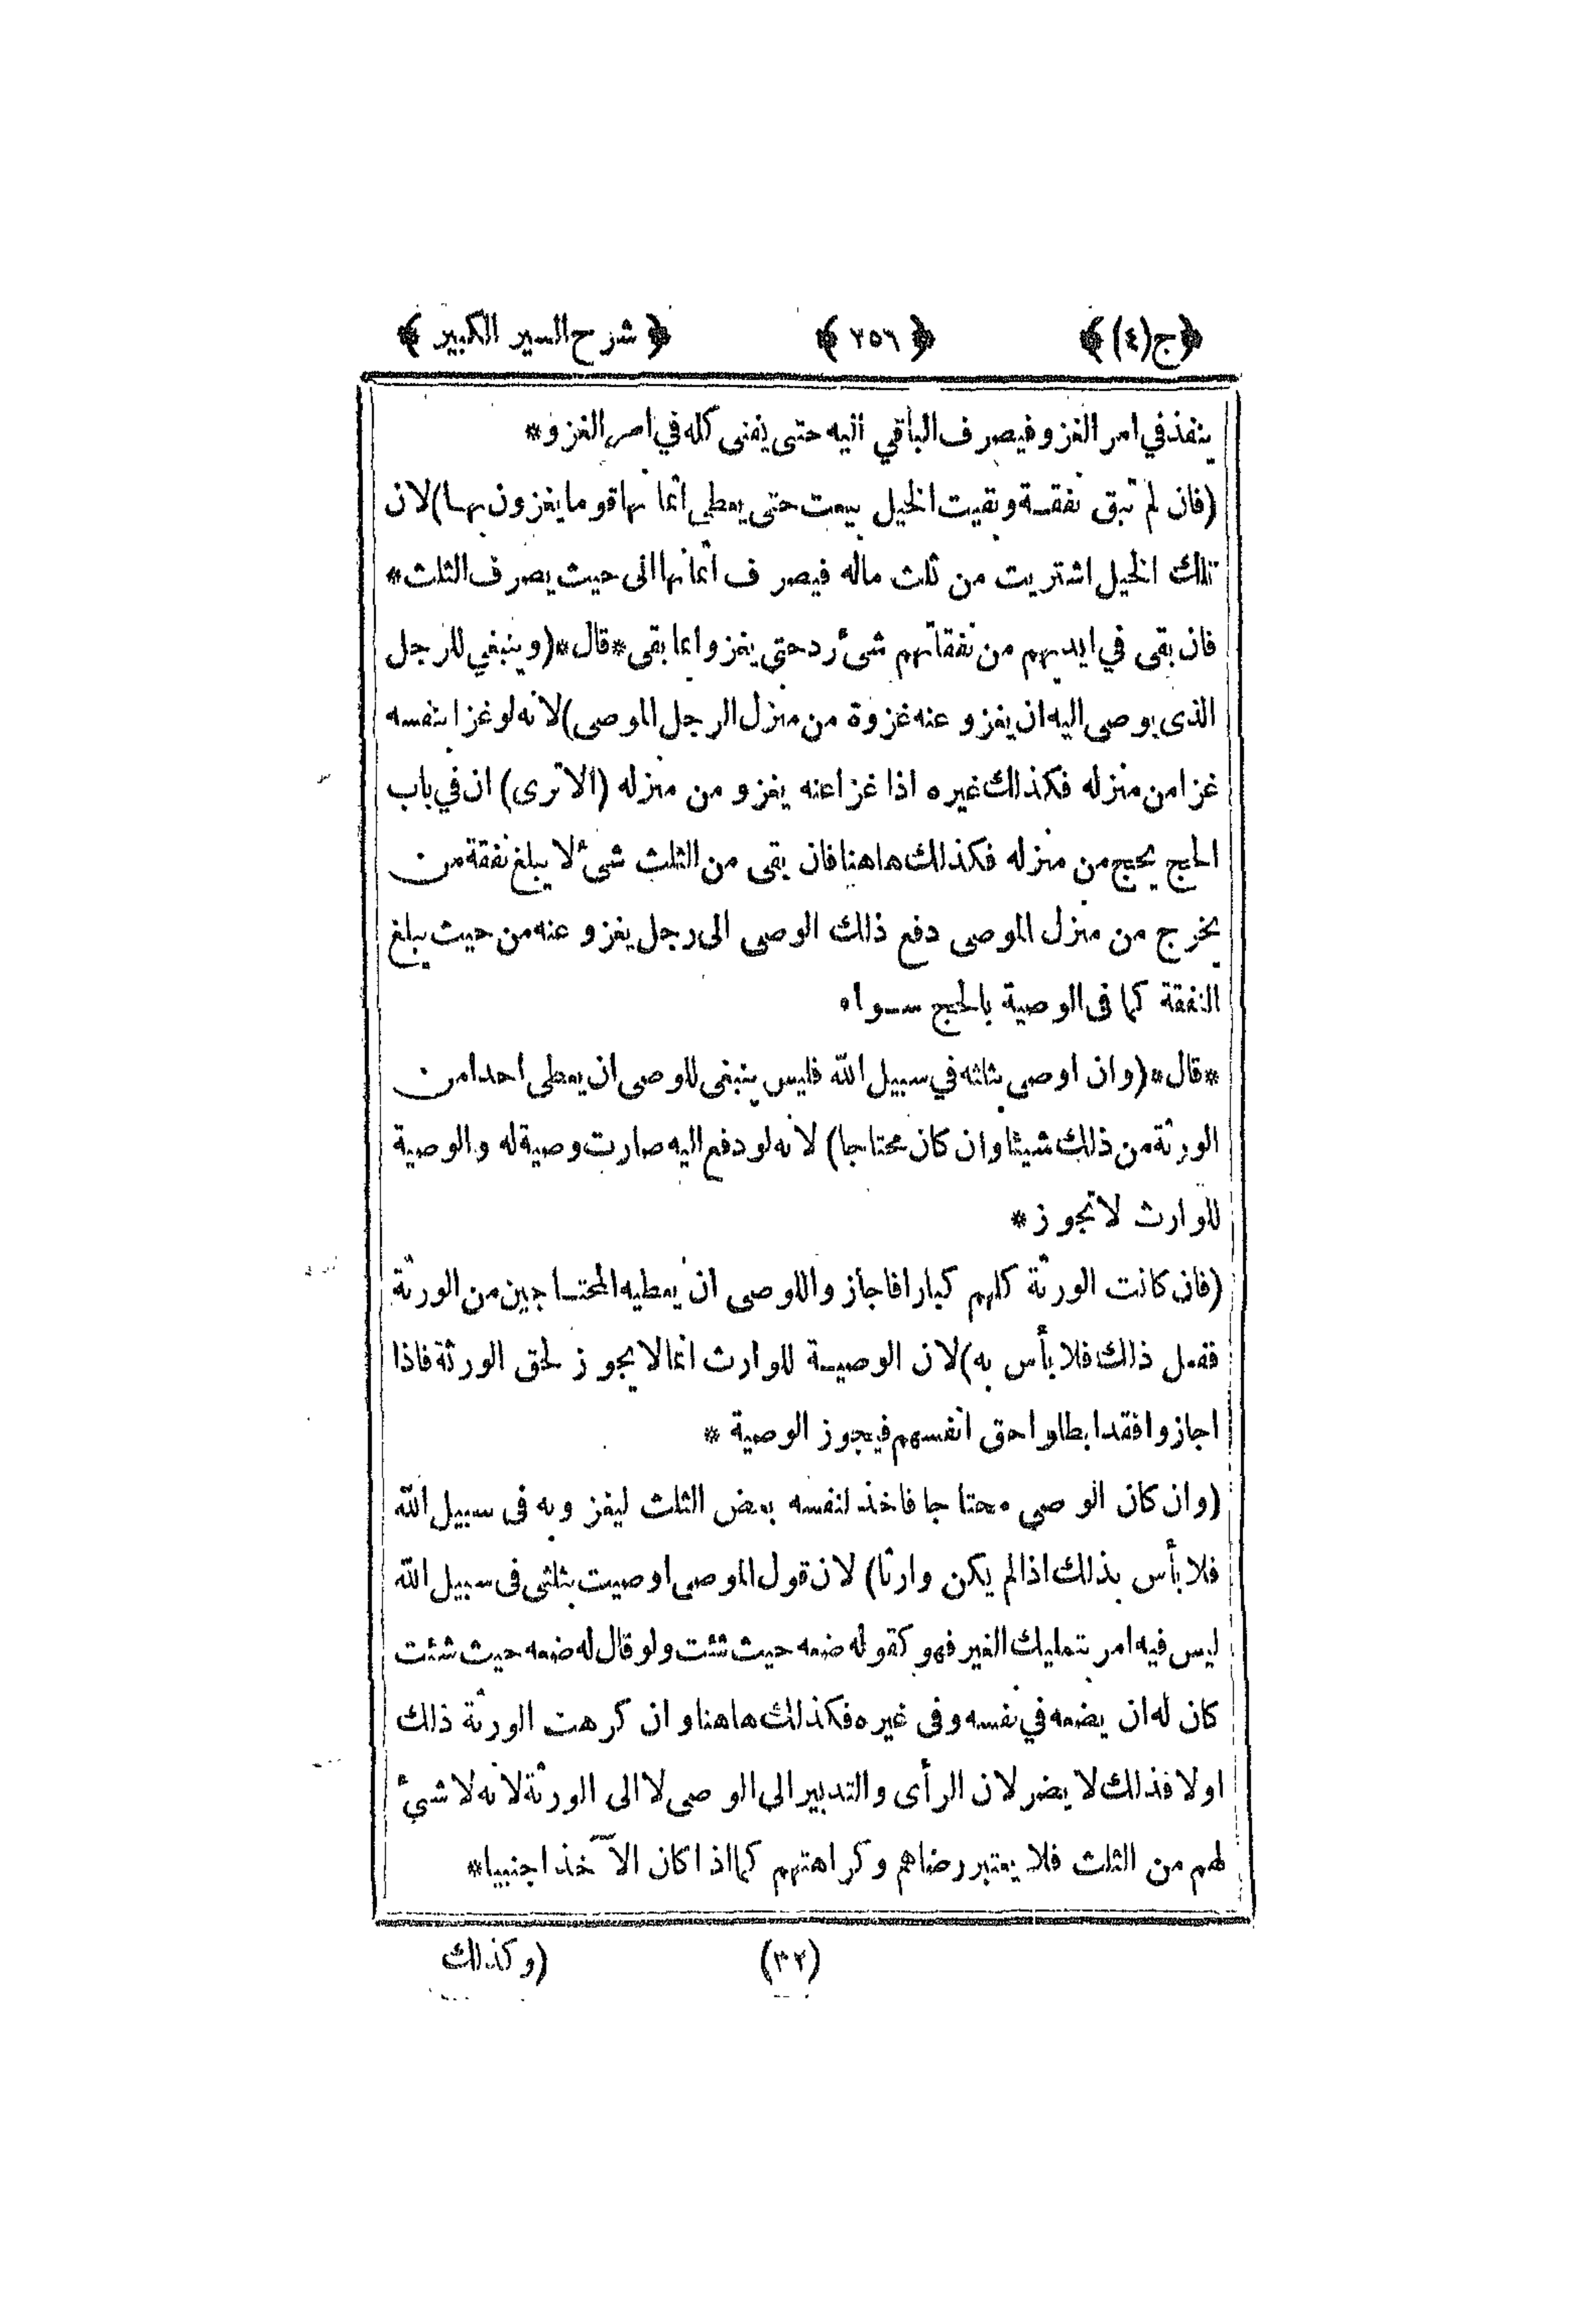 ﴿ج(٤)﴾ ﴿٢٥٦﴾ ﴿شرح السير الكبير﴾
ينفذ في امر الغزو فيصرف الباقي اليه حتى يفنى كله في امر الغزو*
(فان لم تبق نفقة وبقيت الخيل بيعت حتى يعطى اثمانها قوما يغزون بها) لان
تلك الخيل اشتريت من ثلث ماله فيصرف اثمانها الى حيث يصرف الثلث*
فان بقى في ايديهم من نفقاتهم شئ رد حتى يغزوا بما بقى *قال* (وينبغي للرجل
الذى يوصى اليه ان يغزو عنه غزوة من منزل الرجل الموصى) لانه لو غزا بنفسه
غزا من منزله فكذلك غيره اذا غزا عنه يغزو من منزله (الا ترى) ان في باب
الحج يحج من منزله فكذلك هاهنا فان بقى من الثلث شئ لا يبلغ نفقة من
يخرج من منزل الموصى دفع ذلك الوصى الى رجل يغزو عنه من حيث يبلغ
النفقة كما فى الوصية بالحج سواء
*قال* (وان اوصى بثلثه في سبيل الله فليس ينبغى للوصى ان يعطى احدا من
الورثة من ذلك شيئا وان كان محتاجا) لانه لو دفع اليه صارت وصية له والوصية
للوارث لا تجوز*
(فان كانت الورثة كلهم كبارا فاجازوا للوصى ان يعطيه المحتاجين من الورثة
ففعل ذلك فلا بأس به) لان الوصية للوارث انما لا يجوز لحق الورثة فاذا
اجازوا فقد ابطلوا حق انفسهم فيجوز الوصية*
(وان كان الوصى محتاجا فاخذ لنفسه بعض الثلث ليغزو به فى سبيل الله
فلا بأس بذلك اذا لم يكن وارثا) لان قول الموصى اوصيت بثلثى فى سبيل الله
ليس فيه امر بتمليك الغير فهو كقوله ضعه حيث شئت ولو قال له ضعه حيث شئت
كان له ان يضعه في نفسه وفى غيره فكذلك هاهنا وان كرهت الورثة ذلك
اولا فذلك لا يضر لان الرأى والتدبير الى الوصى لا الى الورثة لانه لا شئ
لهم من الثلث فلا يعتبر رضاهم وكراهتهم كما اذا كان الآخذ اجنبيا*
(٣٢) (وكذلك